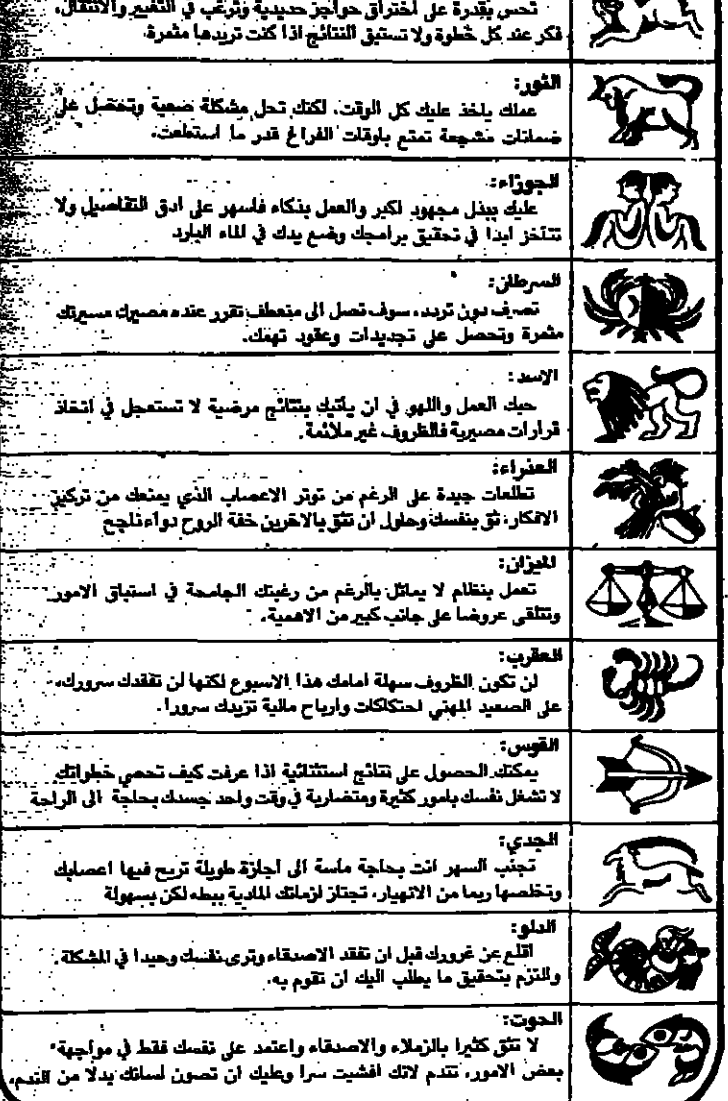 تحس بقدرة على اختراق حواجز حديدية وترغب في التغيير والانتقال،
فكر عند كل خطوة ولا تستبق النتائج اذا كنت تريدها مثمرة.
الثور:
عملك ياخذ عليك كل الوقت، لكنك تحل مشكلة صعبة وتحصل على
ضمانات مشجعة تمتع باوقات الفراغ قدر ما استطعت.
الجوزاء:
عليك ببذل مجهود اكبر والعمل بذكاء فاسهر على ادق التفاصيل ولا
تتأخر ابدا في تحقيق برامجك وضع يدك في الماء البارد
السرطان:
تصرف دون تردد، سوف تصل الى منعطف تقرر عنده مصيرك مسيرتك
مثمرة وتحصل على تجديدات وعقود تهمك.
الاسد:
حبك العمل واللهو في ان يأتيك بنتائج مرضية لا تستعجل في اتخاذ
قرارات مصيرية فالظروف غير ملائمة.
العذراء:
تطلعات جيدة على الرغم من توتر الاعصاب الذي يمنعك من تركيز
الافكار، ثق بنفسك وحاول ان تثق بالاخرين خفة الروح دواء ناجح
الميزان:
تعمل بنظام لا يماثل بالرغم من رغبتك الجامحة في استباق الامور
وتتلقى عروضا على جانب كبير من الاهمية.
العقرب:
لن تكون الظروف سهلة امامك هذا الاسبوع لكنها لن تفقدك سرورك،
على الصعيد المهني احتكاكات وارباح مالية تزيدك سرورا.
القوس:
يمكنك الحصول على نتائج استثنائية اذا عرفت كيف تحصي خطواتك
لا تشغل نفسك بامور كثيرة ومتضاربة في وقت واحد جسدك بحاجة الى الراحة
الجدي:
تجنب السهر انت بحاجة ماسة الى اجازة طويلة تريح فيها اعصابك
وتخلصها ربما من الانهيار، تجتاز ازماتك المادية ببطء لكن بسهولة
الدلو:
اقلع عن غرورك قبل ان تفقد الاصدقاء وترى نفسك وحيدا في المشكلة.
والتزم بتحقيق ما يطلب اليك ان تقوم به.
الحوت:
لا تثق كثيرا بالزملاء والاصدقاء واعتمد على نفسك فقط في مواجهة
بعض الامور، تندم لانك افشيت سرا وعليك ان تصون لسانك بدلا من الندم.